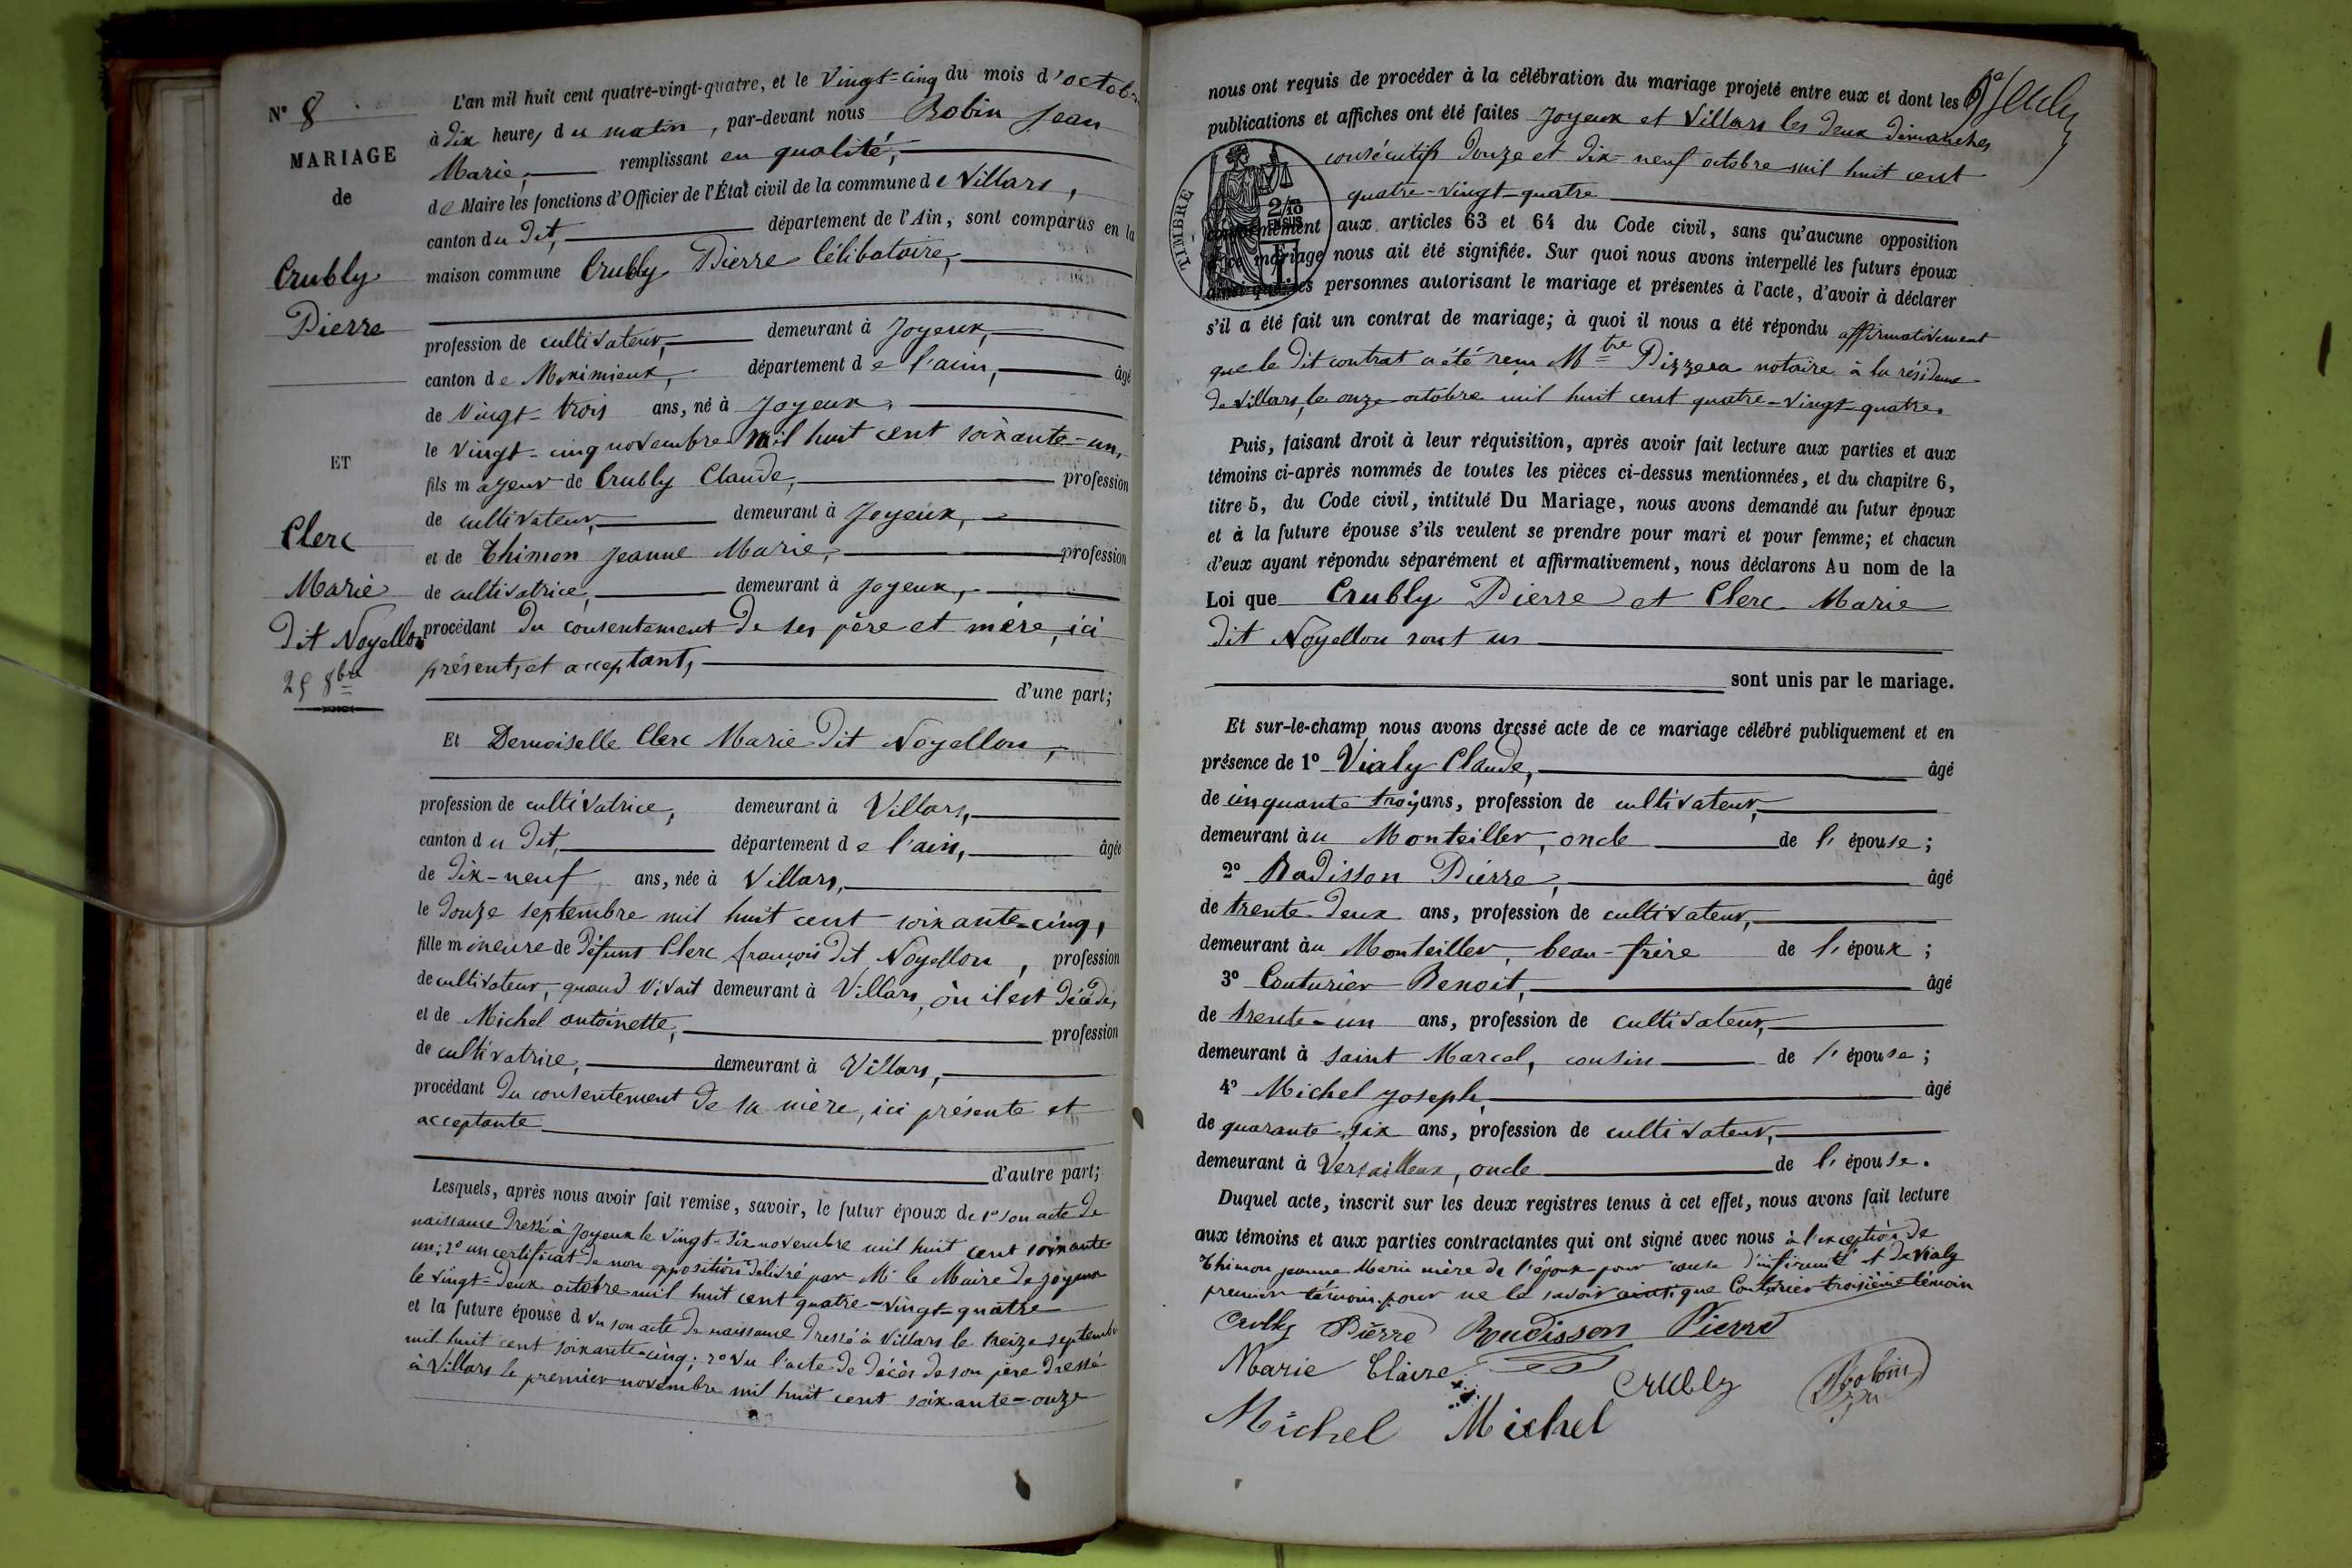 N° 8
MARIAGE
de
Crubly
Pierre
ET
Clerc
Marie
dit Noyellon
25 8bre
L'an mil huit cent quatre-vingt-quatre, et le vingt-cinq du mois d'octob
à dix heures du matin, par-devant nous Robin Jean
Marie, remplissant en qualité,
de Maire les fonctions d'Officier de l'État civil de la commune de Villars,
canton du dit, département de l'Ain, sont comparus en la
maison commune Crubly Pierre Célibataire,
profession de cultivateur, demeurant à Joyeux,
canton de Meximieux, département de l'ain, âgé
de vingt-trois ans, né à Joyeux,
le vingt-cinq novembre mil huit cent soixante-un,
fils mageur de Crubly Claude, profession
de cultivateur, demeurant à Joyeux,
et de Thimon Jeanne Marie, profession
de cultivatrice, demeurant à Joyeux,
procédant du consentement de ses père et mère, ici
présents et acceptants,
d'une part;
Et Demoiselle Clerc Marie dit Noyellon,
profession de cultivatrice, demeurant à Villars,
canton du dit, département de l'ain, âgée
de dix-neuf ans, née à Villars,
le douze septembre mil huit cent soixante-cinq,
fille mineure de défunt Clerc françois dit Noyellon, profession
de cultivateur, quand vivait demeurant à Villars, où il est décédé,
et de Michel antoinette, profession
de cultivatrice, demeurant à Villars,
procédant du consentement de sa mère, ici présente et
acceptante
d'autre part;
Lesquels, après nous avoir fait remise, savoir, le futur époux de 1° son acte de
naissance dressé à Joyeux le vingt-six novembre mil huit cent soixante-
un; 2° un certificat de non opposition délivré par Mr le Maire de Joyeux
le vingt-deux octobre mil huit cent quatre-vingt-quatre
et la future épouse d vu son acte de naissance dressé à Villars le treize septembre
mil huit cent soixante-cinq; 2° vu l'acte de décès de son père dressé
à Villars le premier novembre mil huit cent soixante-onze
nous ont requis de procéder à la célébration du mariage projeté entre eux et dont les
publications et affiches ont été faites Joyeux et Villars les deux dimanches
consécutifs douze et dix-neuf octobre mil huit cent
quatre-vingt-quatre
TIMBRE
2/10
EN SUS
conformément aux articles 63 et 64 du Code civil, sans qu'aucune opposition
à ce mariage nous ait été signifiée. Sur quoi nous avons interpellé les futurs époux
ainsi que les personnes autorisant le mariage et présentes à l'acte, d'avoir à déclarer
s'il a été fait un contrat de mariage; à quoi il nous a été répondu affirmativement
que le dit contrat a été reçu Mtre Pizzera notaire à la résidence
de Villars, le onze octobre mil huit cent quatre-vingt-quatre.
Puis, faisant droit à leur réquisition, après avoir fait lecture aux parties et aux
témoins ci-après nommés de toutes les pièces ci-dessus mentionnées, et du chapitre 6,
titre 5, du Code civil, intitulé Du Mariage, nous avons demandé au futur époux
et à la future épouse s'ils veulent se prendre pour mari et pour femme; et chacun
d'eux ayant répondu séparément et affirmativement, nous déclarons Au nom de la
Loi que Crubly Pierre et Clerc Marie
dit Noyellon sont un
sont unis par le mariage.
Et sur-le-champ nous avons dressé acte de ce mariage célébré publiquement et en
présence de 1° Vialy Claude, âgé
de cinquante trois ans, profession de cultivateur,
demeurant àu Monteiller, oncle de l' épouse;
2° Radisson Pierre, âgé
de trente-deux ans, profession de cultivateur,
demeurant àu Monteiller, beau-frère de l' époux;
3° Couturier Benoit, âgé
de trente-un ans, profession de cultivateur,
demeurant à saint Marcel, cousin de l' épouse;
4° Michel joseph, âgé
de quarante-six ans, profession de cultivateur,
demeurant à Versailleux, oncle de l' épouse.
Duquel acte, inscrit sur les deux registres tenus à cet effet, nous avons fait lecture
aux témoins et aux parties contractantes qui ont signé avec nous à l'exception de
Thimon jeanne Marie mère de l'époux pour cause d'infirmité et de Vialy
premier témoin pour ne le savoir ainsi que Couturier troisième témoin
Crubly Pierre Radisson Pierre
Marie Claire
Crubly Robin
Michel Michel